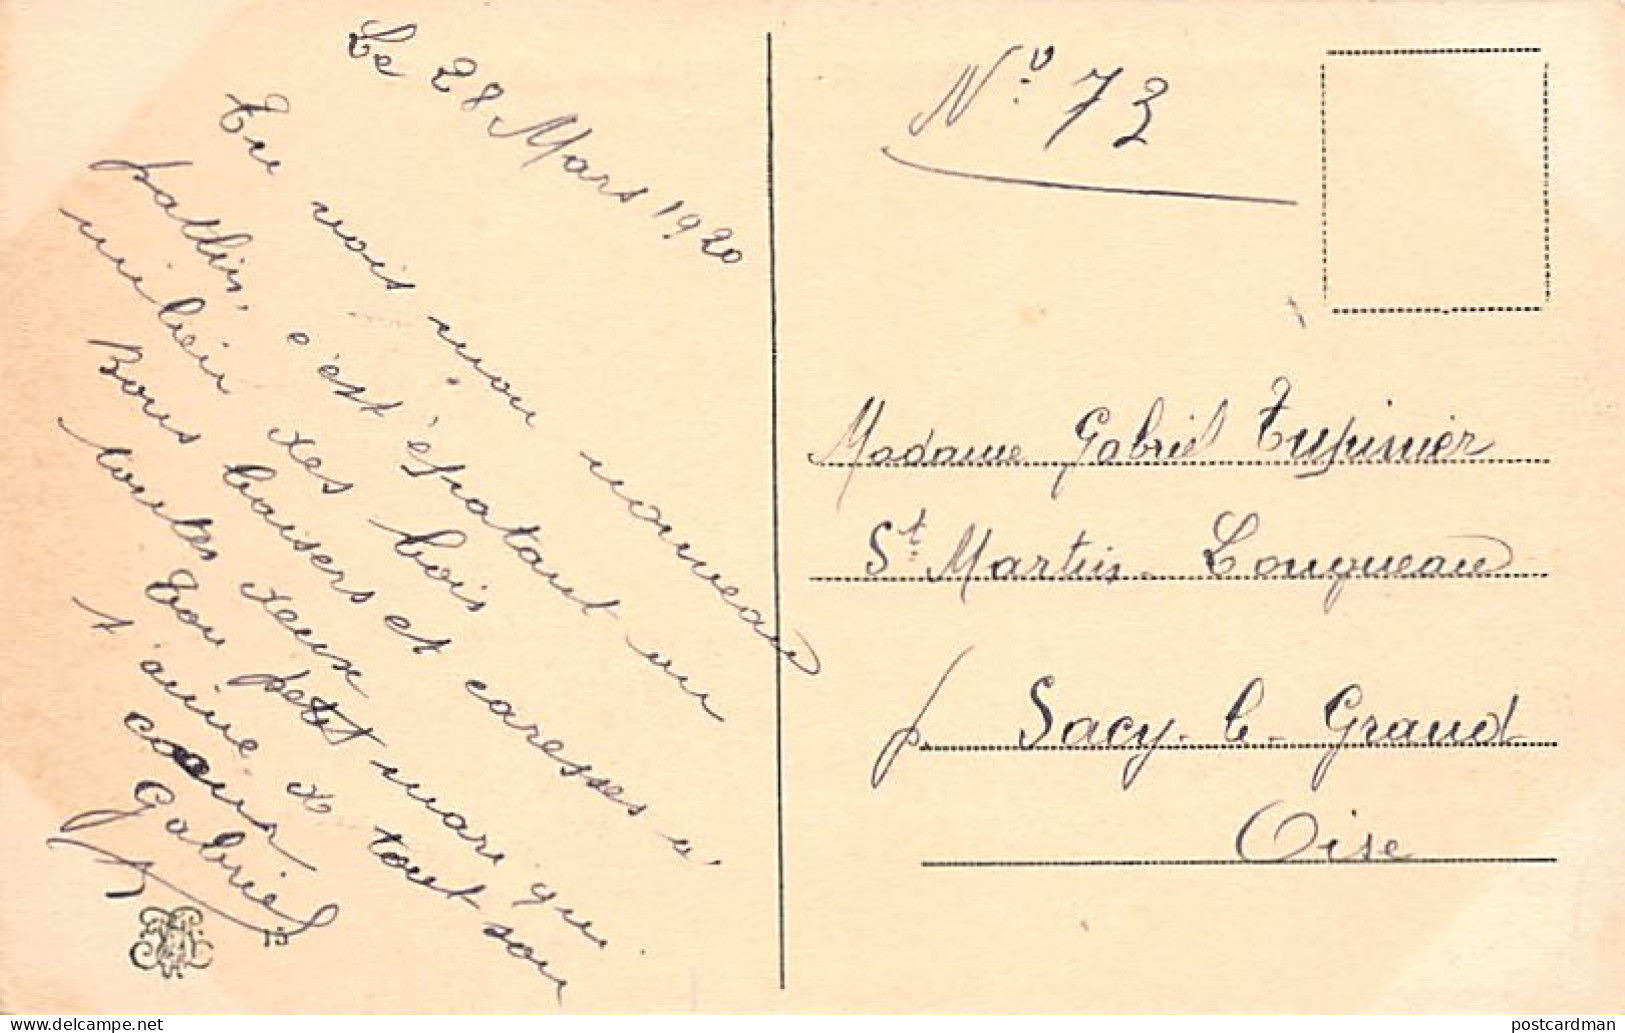 Le 28 Mars 1920
Tu vois mon nouveau
patlin, c'est épatant un
milieu des bois
Bons baisers et caresses à
toutes deux
Ton petit mari qui
t'aime de tout son
cœur
Gabriel
Nº 73
Madame Gabriel Tupinier
St Martin Longueau
p. Sacy-le-Grand
Oise
postcardman